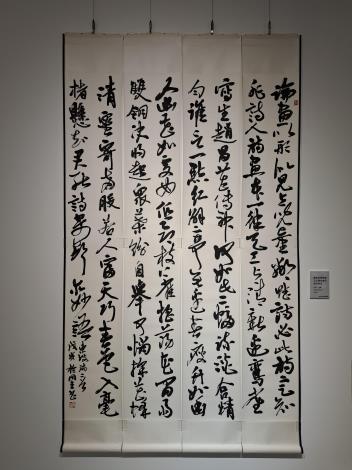 論畫以形似見與兒童鄰賦詩必此詩定知
非詩人詩畫本一律天工與清新邊鸞雀
寫生趙昌花傳神何如此兩幅疏淡含精
勻誰言一點紅解寄無邊春瘦竹如幽
人幽花如處女低昂枝上雀搖蕩花間雨
雙翎決將起衆葉紛自舉可憐採花蜂
清蜜寄兩股若人富天巧春色入毫
楮懸知君能詩寄聲求妙語